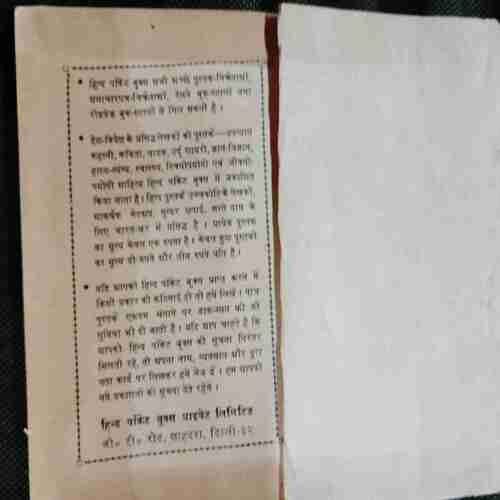 • हिन्द पॉकेट बुक्स सभी अच्छे पुस्तक-विक्रेताओं,
समाचारपत्र-विक्रेताओं, रेलवे बुक-स्टालों तथा
रोडवेज़ बुक-स्टालों से मिल सकती हैं।
• देश-विदेश के प्रसिद्ध लेखकों की पुस्तकें—उपन्यास
कहानी, कविता, नाटक, उर्दू शायरी, ज्ञान-विज्ञान,
हास्य-व्यंग्य, स्वास्थ्य, स्त्रियोपयोगी एवं जीवनो-
पयोगी साहित्य हिन्द पॉकेट बुक्स में प्रकाशित
किया जाता है। हिन्द पुस्तकें उच्चकोटि के लेखकों,
आकर्षक गेटअप, सुन्दर छपाई, सस्ते दाम के
लिए भारत-भर में प्रसिद्ध हैं। प्रत्येक पुस्तक
का मूल्य केवल एक रुपया है। केवल कुछ पुस्तकों
का मूल्य दो रुपये और तीन रुपये प्रति है।
• यदि आपको हिन्द पॉकेट बुक्स प्राप्त करने में
किसी प्रकार की कठिनाई हो तो हमें लिखें। पांच
पुस्तकें एकसाथ मंगाने पर डाक-व्यय फ्री की
सुविधा भी दी जाती है। यदि आप चाहते हैं कि
आपको हिन्द पॉकेट बुक्स की सूचना निरंतर
मिलती रहे, तो अपना नाम, व्यवसाय और पूरा
पता कार्ड पर लिखकर हमें भेज दें। हम आपको
नये प्रकाशनों की सूचना देते रहेंगे।
हिन्द पॉकेट बुक्स प्राइवेट लिमिटेड
जी० टी० रोड, शाहदरा, दिल्ली-३२